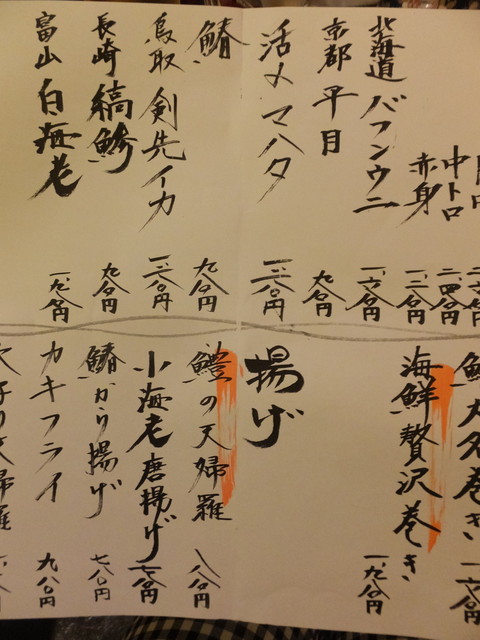 中トロ 二、四八〇円
赤身 一、二八〇円
北海道 バフンウニ 一、六八〇円
京都 平目 九八〇円
活〆マハタ 一、二八〇円
鰆 九八〇円
鳥取 剣先イカ 一、二八〇円
長崎 縞鯵 九八〇円
富山 白海老 一、九八〇円
大名巻き
海鮮贅沢巻き 一、九八〇円
揚げ
鱧の天婦羅 八八〇円
小海老唐揚げ 七八〇円
鰆から揚げ 七八〇円
カキフライ 九八〇円
天婦羅